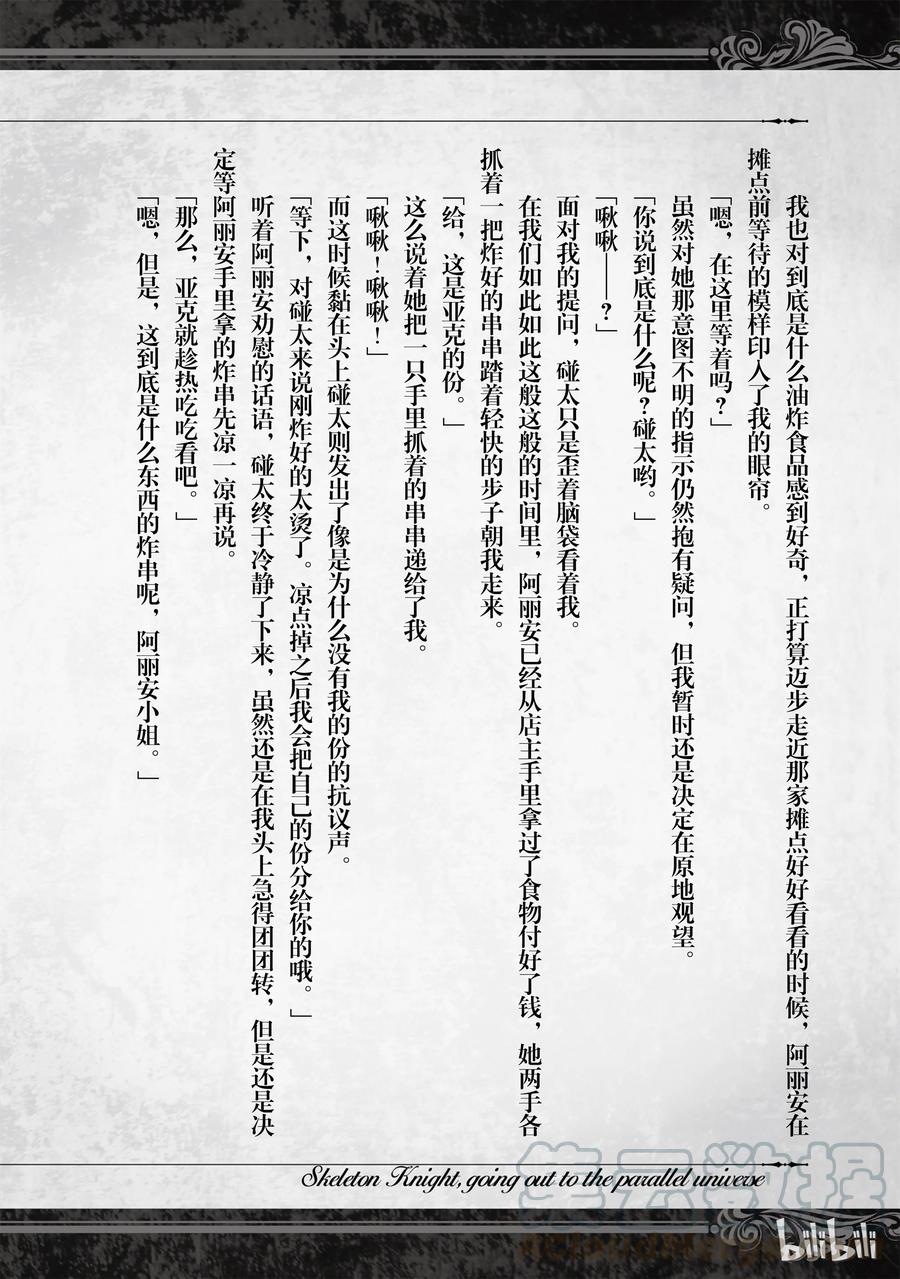 我也对到底是什么油炸食品感到好奇，正打算迈步走近那家摊点好好看看的时候，阿丽安在
摊点前等待的模样印入了我的眼帘。
「嗯，在这里等着吗？」
虽然对她那意图不明的指示仍然抱有疑问，但我暂时还是决定在原地观望。
「你说到底是什么呢？碰太哟。」
「啾啾——？」
面对我的提问，碰太只是歪着脑袋看着我。
在我们如此如此这般这般的时间里，阿丽安已经从店主手里拿过了食物付好了钱，她两手各
抓着一把炸好的串串踏着轻快的步子朝我走来。
「给，这是亚克的份。」
这么说着她把一只手里抓着的串串递给了我。
「啾啾！啾啾！」
而这时候黏在头上碰太则发出了像是为什么没有我的份的抗议声。
「等下，对碰太来说刚炸好的太烫了。凉点掉之后我会把自己的份分给你的哦。」
听着阿丽安劝慰的话语，碰太终于冷静了下来，虽然还是在我头上急得团团转，但是还是决
定等阿丽安手里拿的炸串先凉一凉再说。
「那么，亚克就趁热吃吃看吧。」
「嗯，但是，这到底是什么东西的炸串呢，阿丽安小姐。」
Skeleton Knight, going out to the parallel universe
bilibili